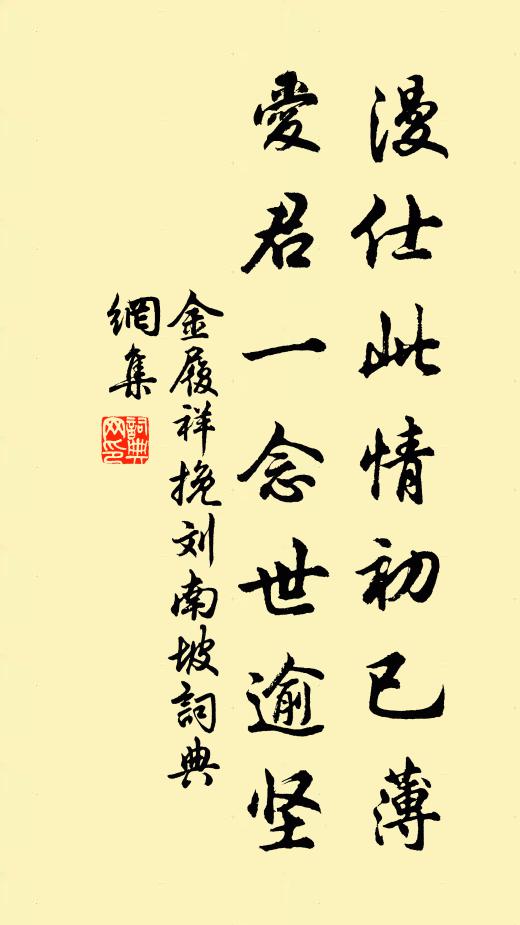 漫仕此情初已薄
愛君一念世逾坚
金履祥挽刘南坡詞典
網集
詞典網印